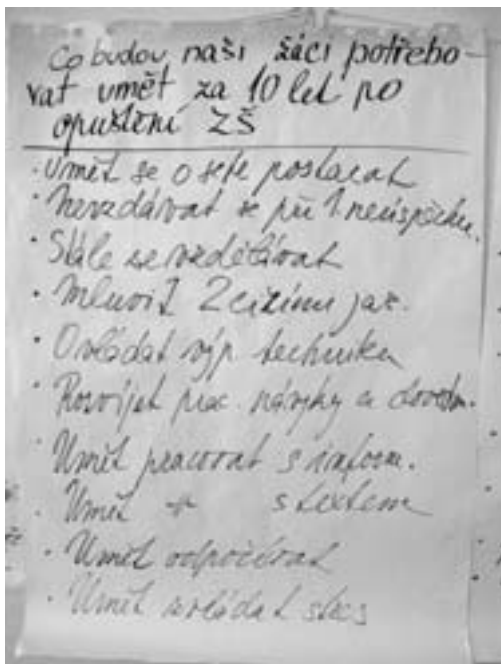 Co budou naši žáci potřebo-
vat umět za 10 let po
opuštění ZŠ
· Umět se o sebe postarat
· Nevzdávat se při 1. neúspěchu.
· Stále se vzdělávat
· Mluvit 2 cizími jaz.
· Ovládat výp. techniku
· Rozvíjet prac. návyky a dovedn.
· Umět pracovat s inform.
· Umět -"- s textem
· Umět odpočívat
· Umět zvládat stres